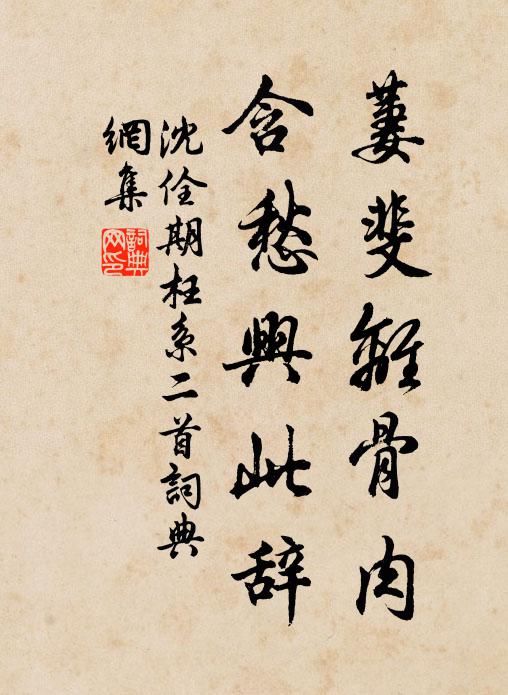 萋斐離骨肉
含愁興此辞
沈佺期枉系二首詞典
網集
詞典
网印